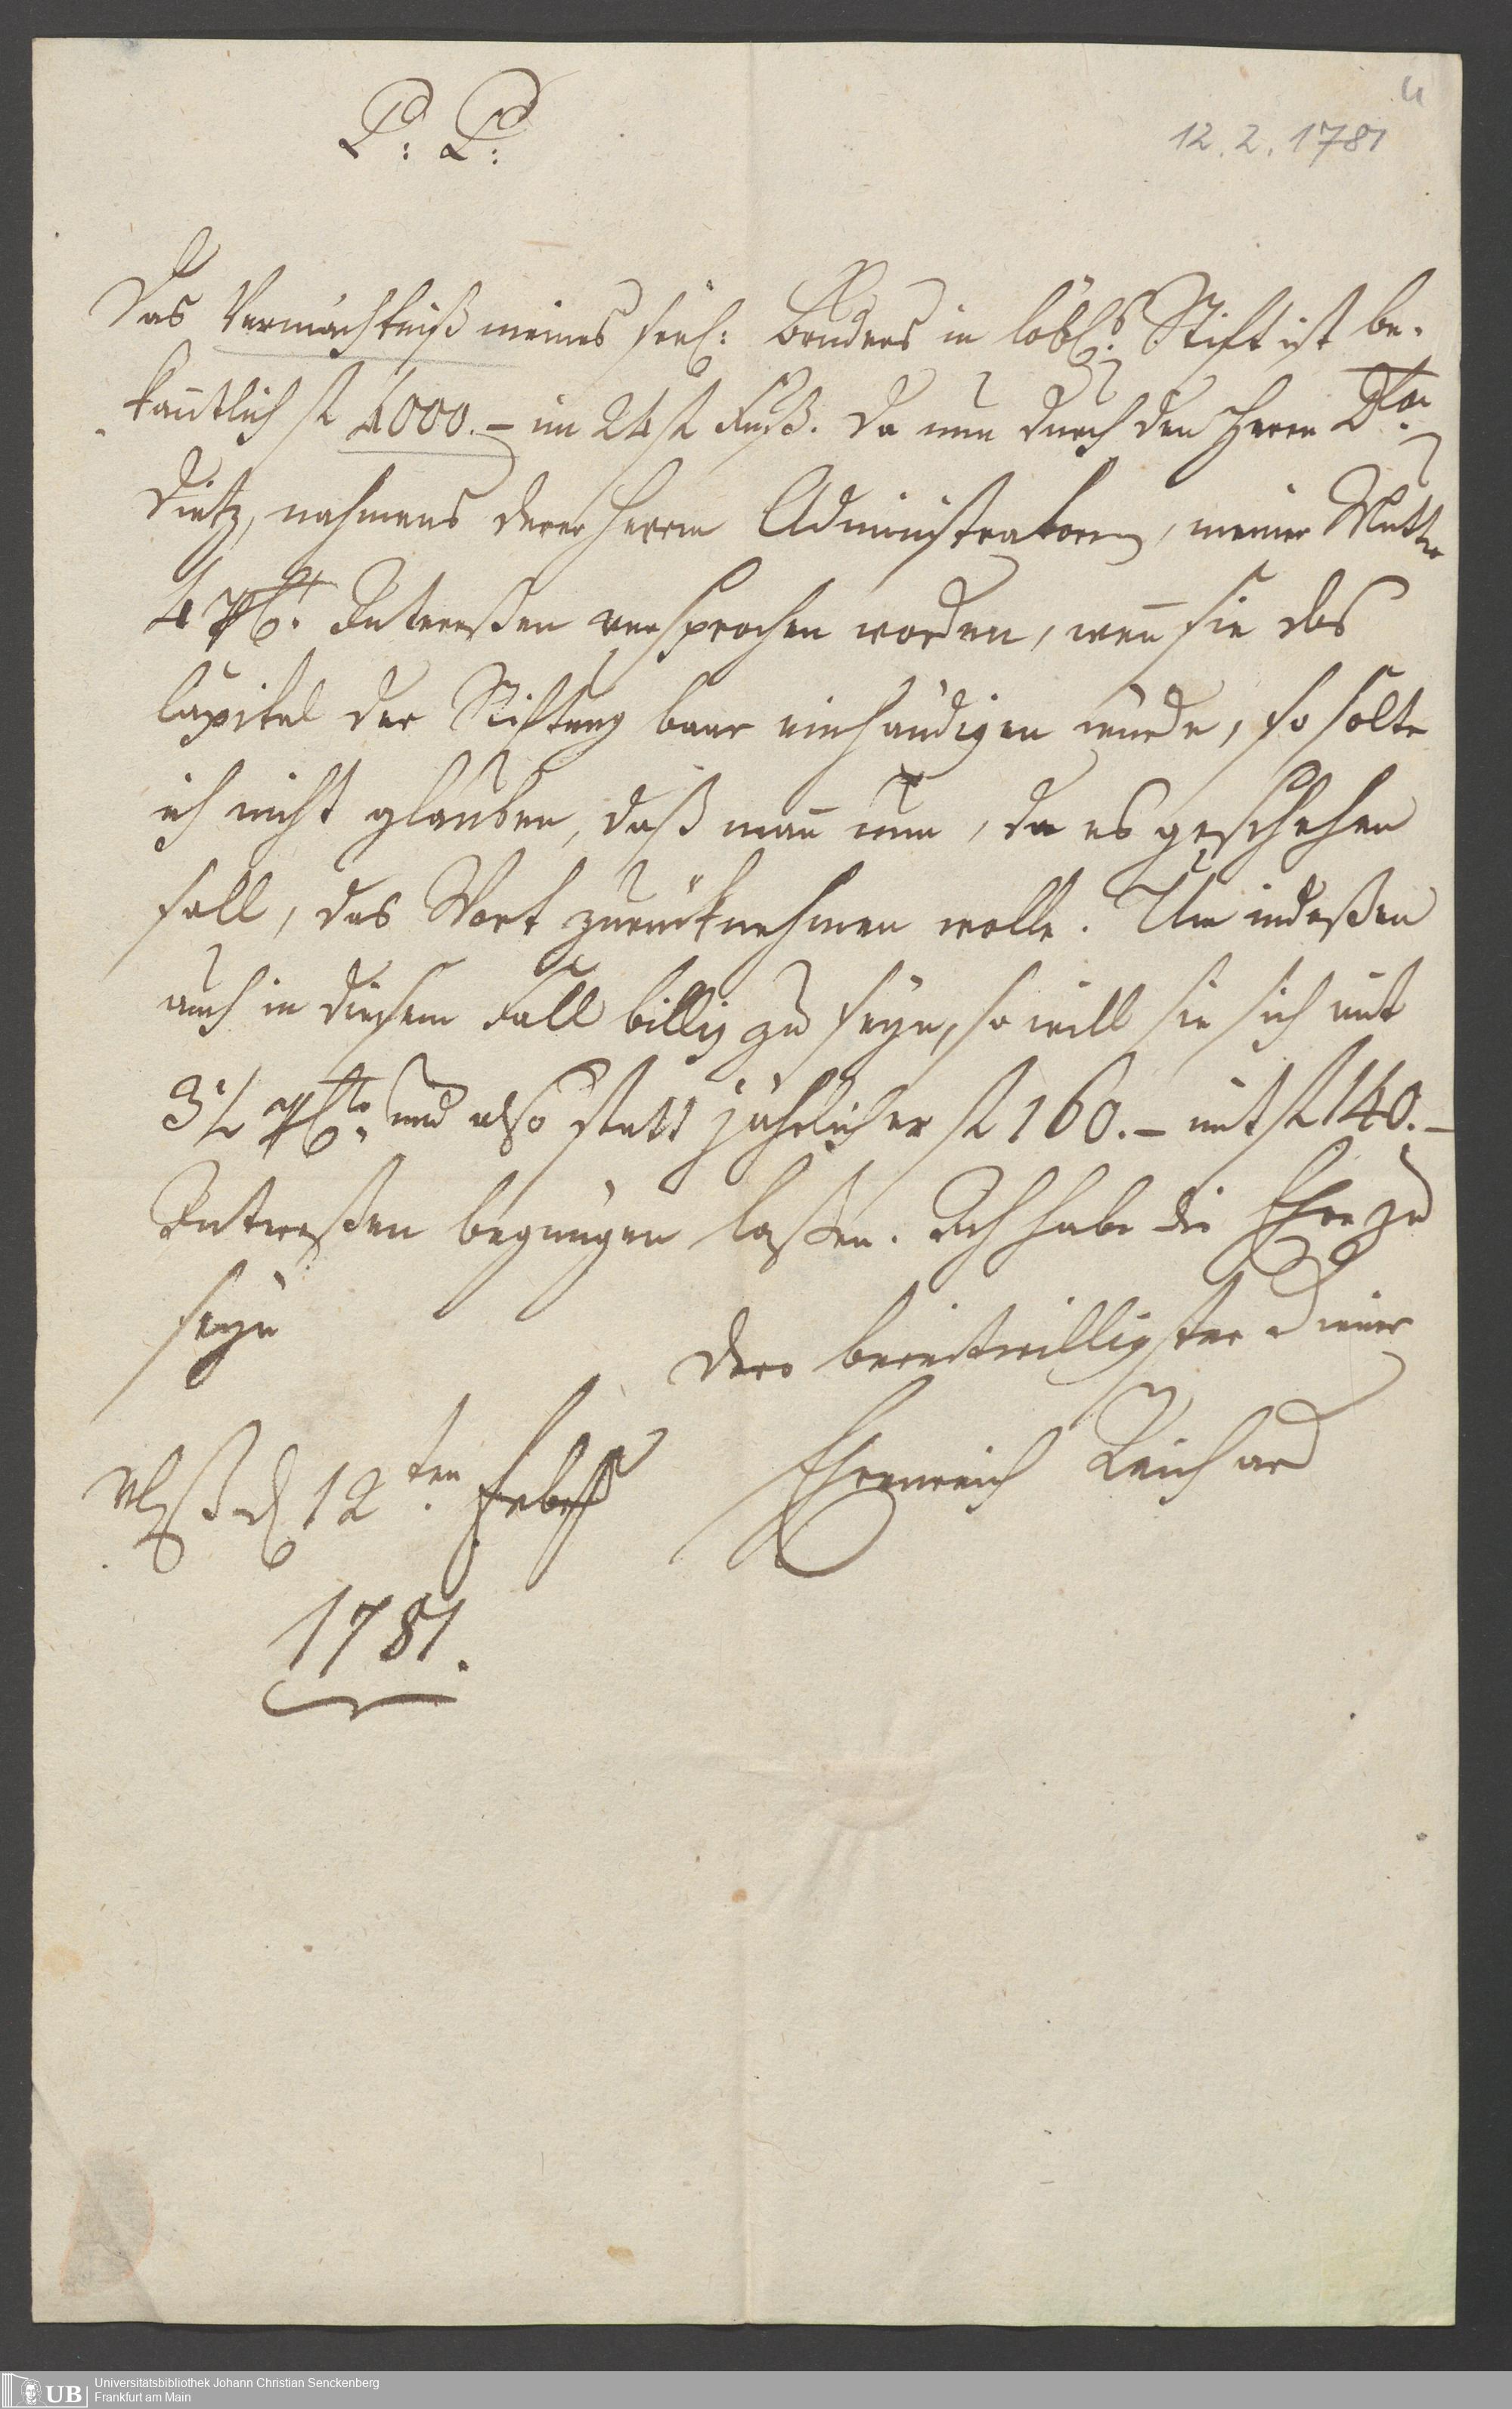 4
12. 2. 1781
P: P:
Das Vermächtniß meines seel: Bruders in löbl: Stift ist be-
kañtlich fl 4000.– im 24 fl Fuß. Da nun durch den Herrn Dtor
Dietz, nahmens derer Herrn Administratoren, meiner Mutter
4 pCt. Interessen versprochen worden, weñ sie das
Capital der Stiftung baar einhändigen würde, so solte
ich nicht glauben, daß mañ nun, da es geschehen
soll, das Wort zurücknehmen wolle. Um indeßen
auch in diesem Fall billig zu seyn, so will sie sich mit
3½ pCto und also statt jährlicher fl 160.– mit fl 140.–
Interessen begnügen laßen. Ich habe die Ehre zu
seyn
Dero bereitwilligster Diener
Ehrenreich Reichard
d 12ten Febr
1781.
UB
Universitätsbibliothek Johann Christian Senckenberg
Frankfurt am Main